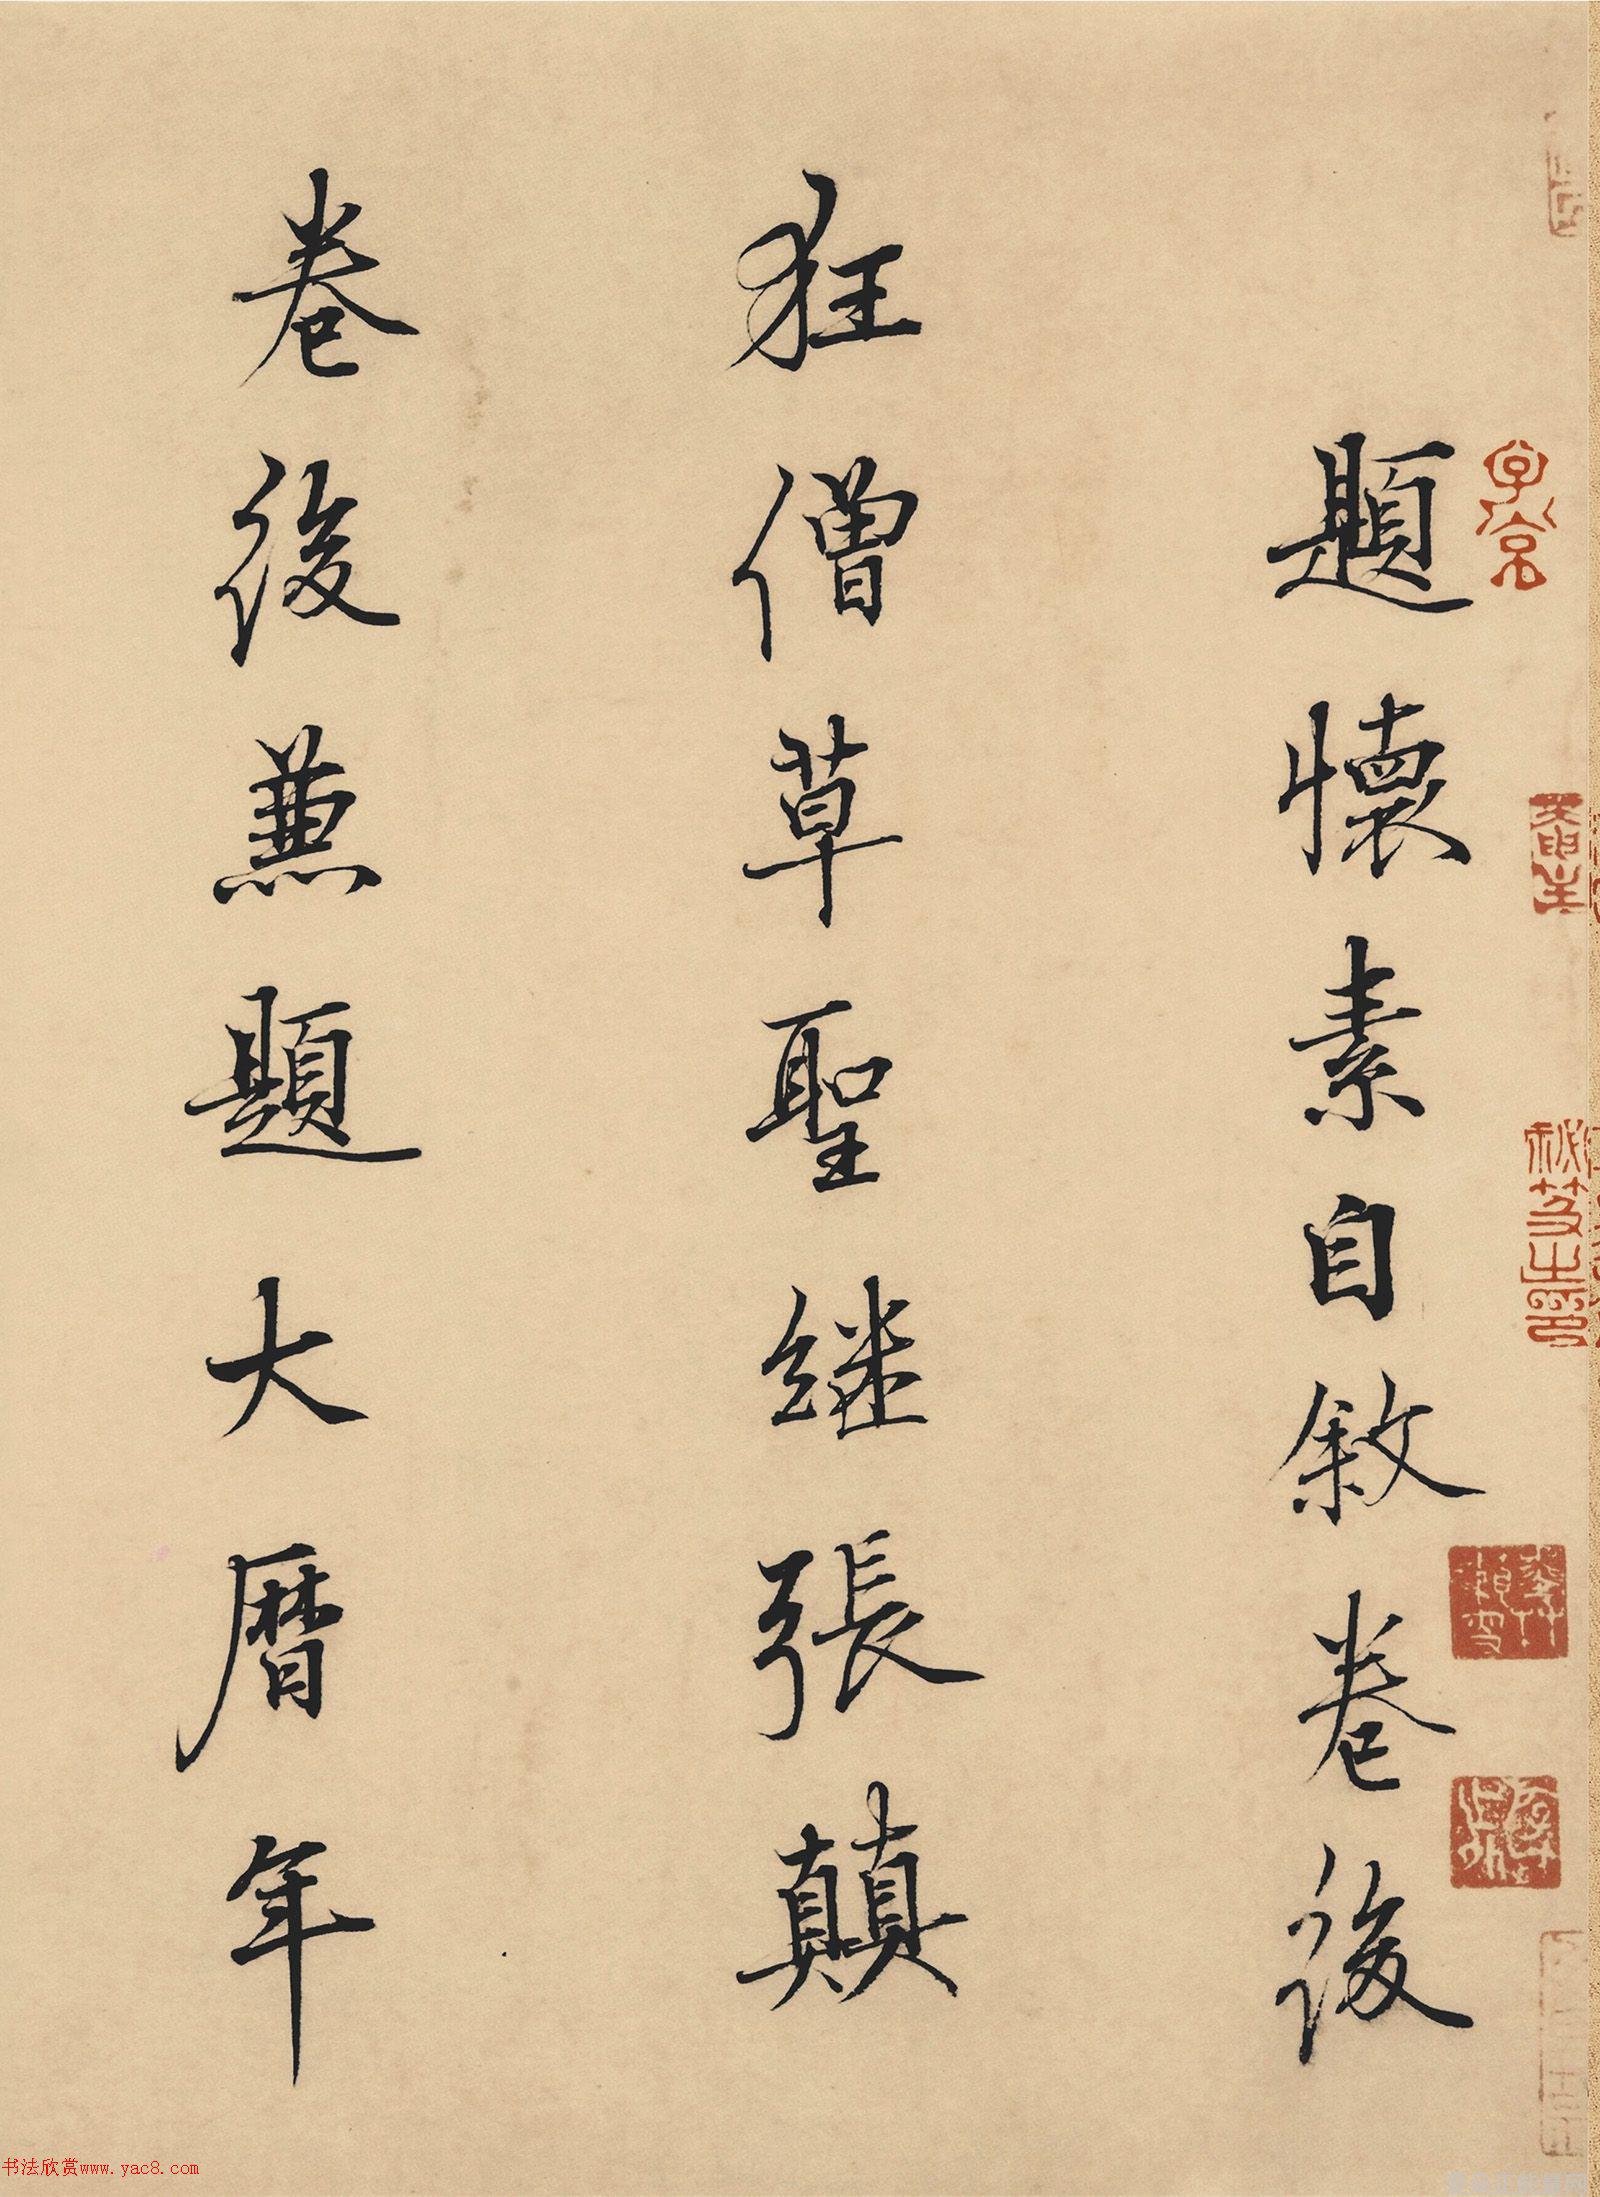 題懷素自敘卷後
狂僧草聖継張顛
卷後兼題大曆年
子京
书法欣赏www.yac8.com